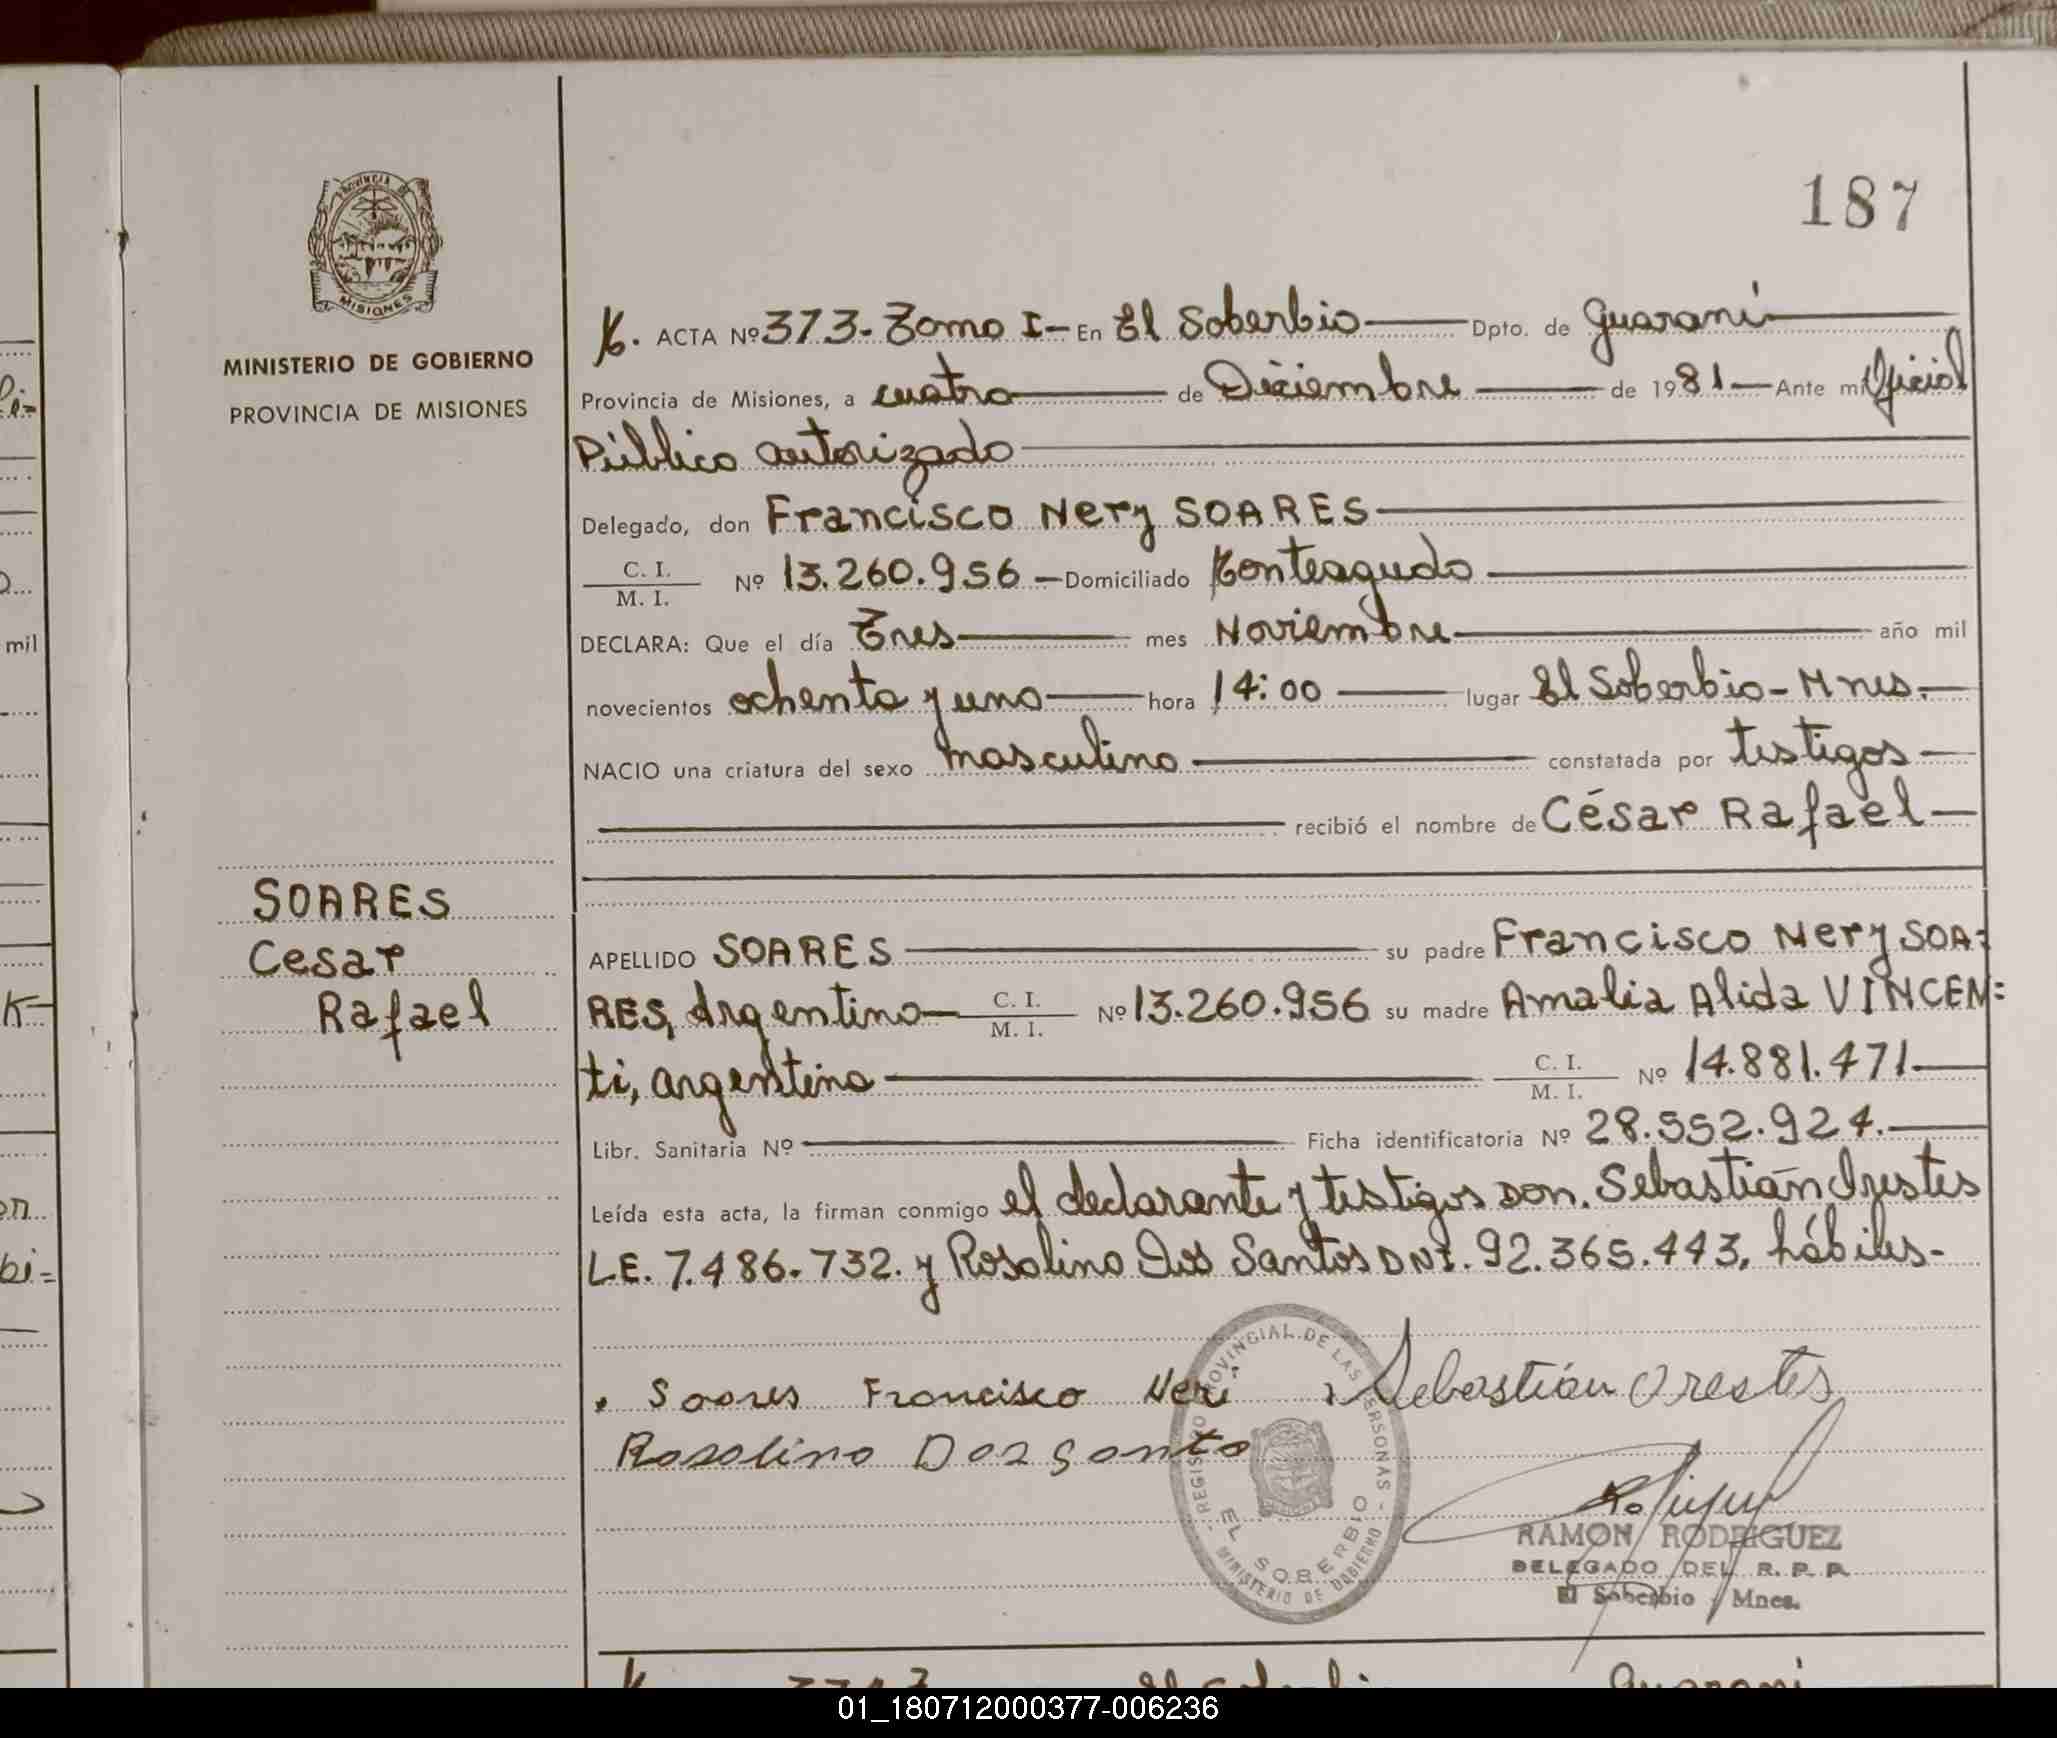 187
PROVINCIA DE
MISIONES
MINISTERIO DE GOBIERNO
PROVINCIA DE MISIONES
ACTA Nº 373- Tomo I- En El Soberbio Dpto. de Guaraní
Provincia de Misiones, a cuatro de Diciembre de 1981 Ante mi Oficial
Público autorizado
Delegado, don Francisco Nery SOARES
C. I.
M. I.
Nº 13.260.956 Domiciliado Monteagudo
DECLARA: Que el día Tres mes Noviembre año mil
novecientos ochenta y uno hora 14:00 lugar El Soberbio- Mnes.
NACIO una criatura del sexo masculino constatada por testigos
recibió el nombre de César Rafael
SOARES
Cesar
Rafael
APELLIDO SOARES su padre Francisco Nery SOA=
RES, Argentino C. I. / M. I. Nº 13.260.956 su madre Amalia Alida VINCEN=
ti, argentina C. I. / M. I. Nº 14.881.471
Libr. Sanitaria Nº Ficha identificatoria Nº 28.552.924.
Leída esta acta, la firman conmigo el declarante y testigos Don. Sebastián Orestes
LE. 7.486.732. y Rosalino Dos Santos DNI. 92.365.443, hábiles-
Soares Francisco Neri Sebastián Orestes
Rosalino Dos Santo
REGISTRO PROVINCIAL DE LAS PERSONAS
EL SOBERBIO
MINISTERIO DE GOBIERNO
RAMON RODRIGUEZ
DELEGADO DEL R. P. P.
El Soberbio - Mnes.
mil
01_180712000377-006236